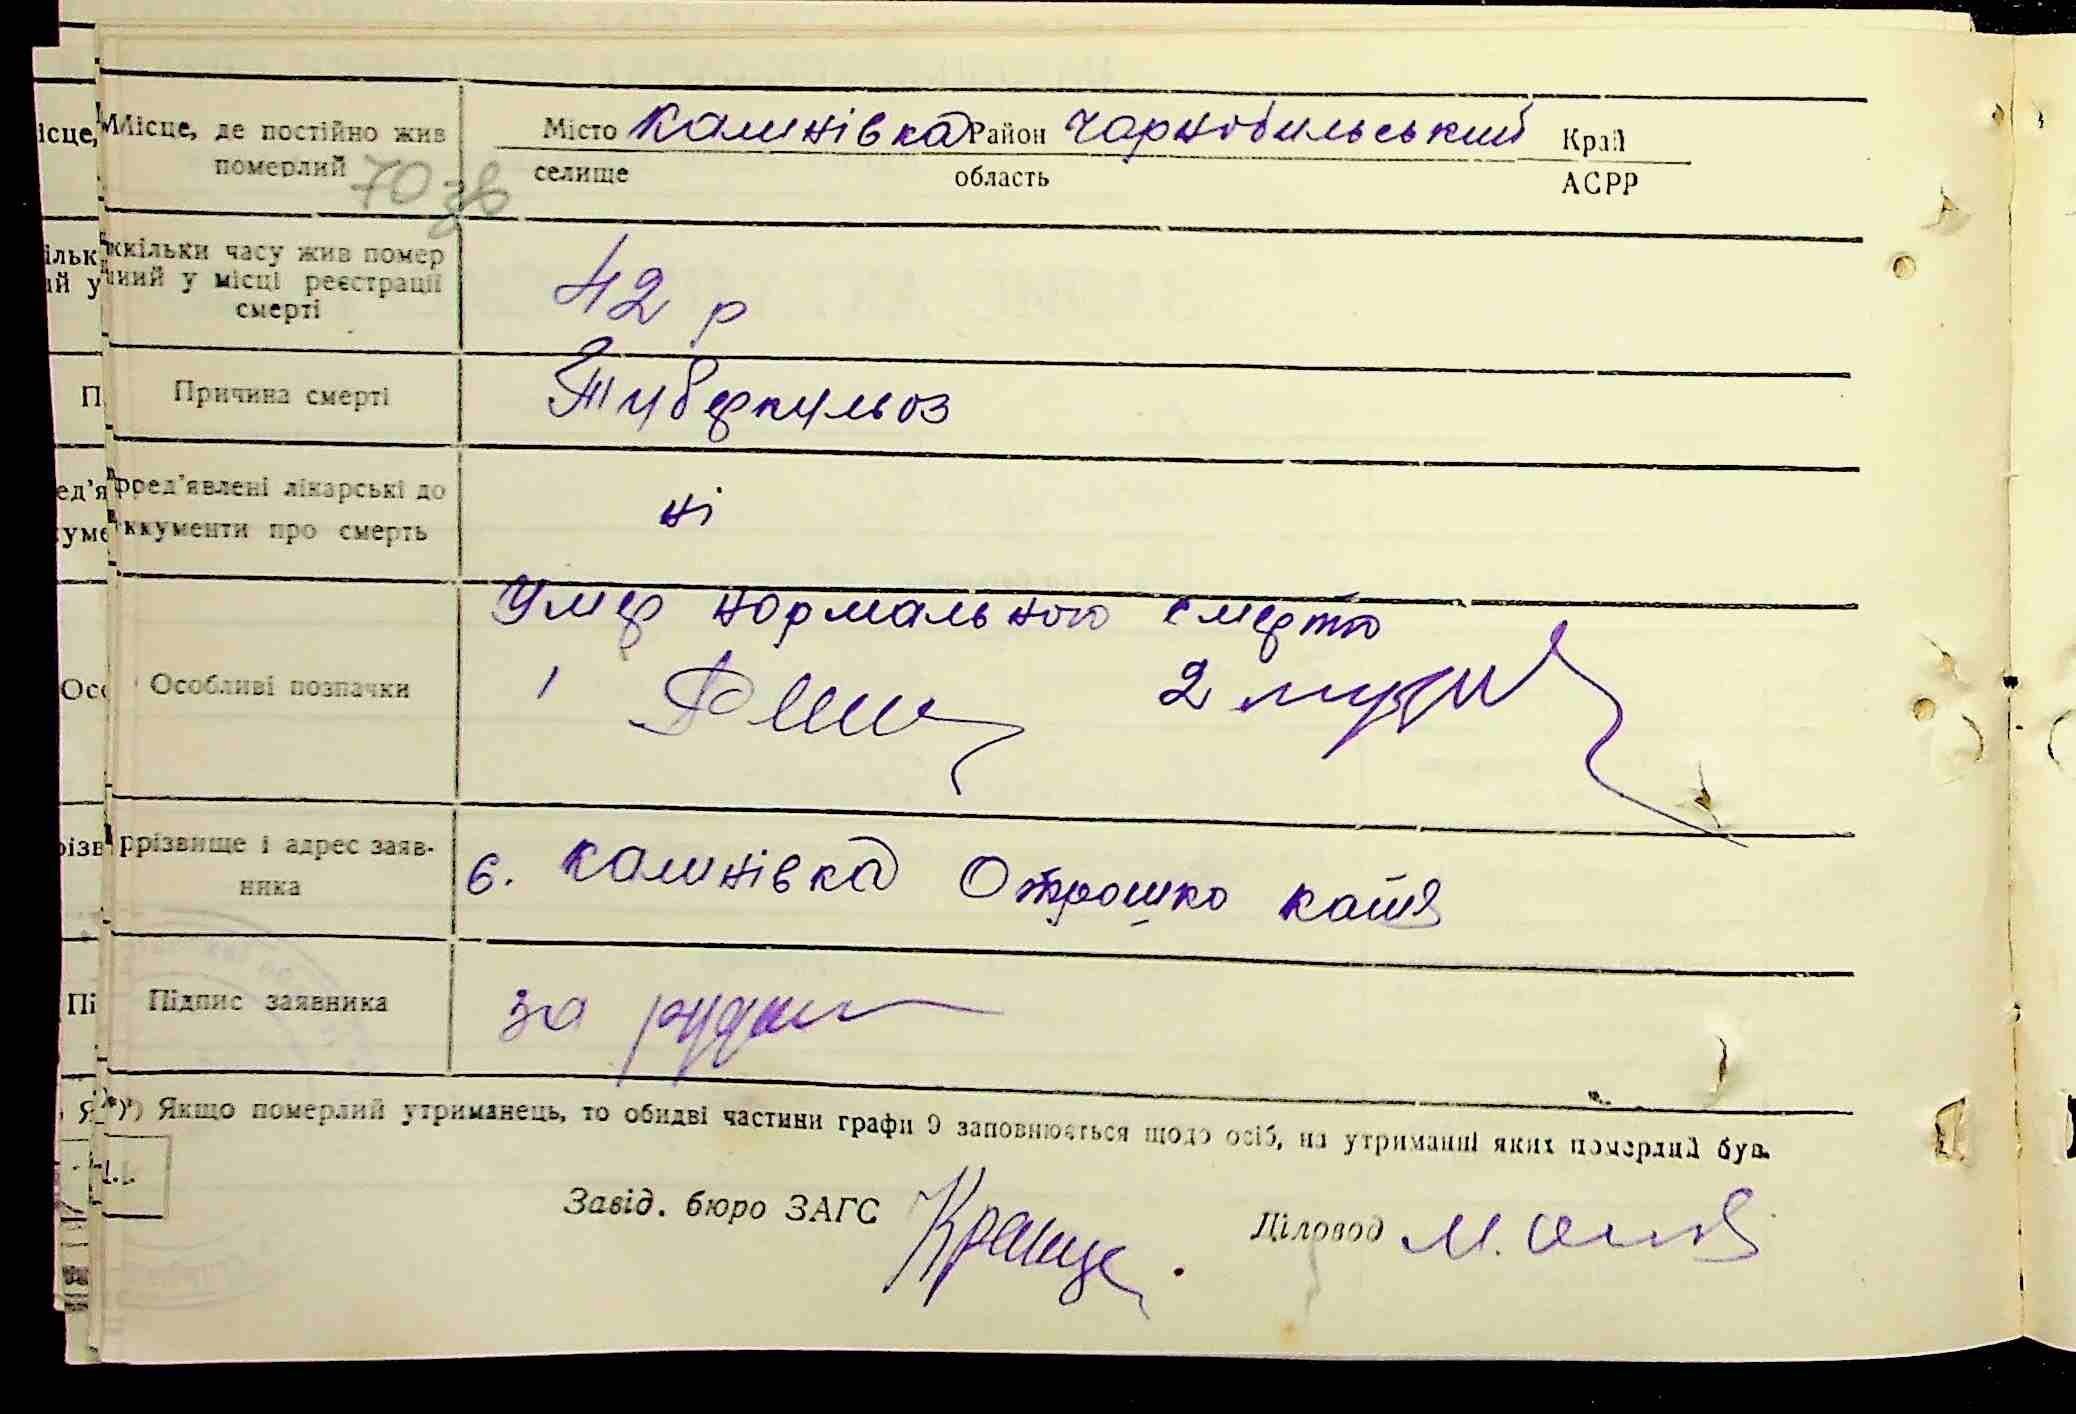 Місце, де постійно жив
померлий
70 зв
Місто Калинівка Район Чорнобильський Край
селище область АСРР
скільки часу жив помер
лий у місці реєстрації
смерті
42 р
Причина смерті
Туберкульоз
Пред'явлені лікарські до
кументи про смерть
ні
Особливі позначки
Умер нормальною смертю
1
2
Прізвище і адрес заяв-
ника
с. Калинівка Отрошко Катя
Підпис заявника
за
*) Якщо померлий утриманець, то обидві частини графи 9 заповнюється щодо осіб, на утриманні яких померлий був.
Завід. бюро ЗАГС
Діловод М.